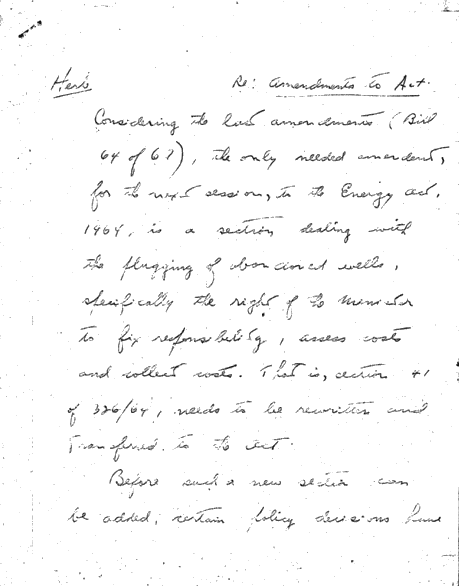 Herb
Re: Amendments to Act.
Considering the last amendments (Bill
64 of 67), the only needed amendment,
for the next session, to the Energy act,
1964, is a section dealing with
the plugging of abandoned wells,
specifically the right of the Minister
to fix responsibility, assess costs
and collect costs. That is, section 41
of 326/64, needs to be rewritten and
Transferred to the act.
Before such a new section can
be added, certain policy decisions have